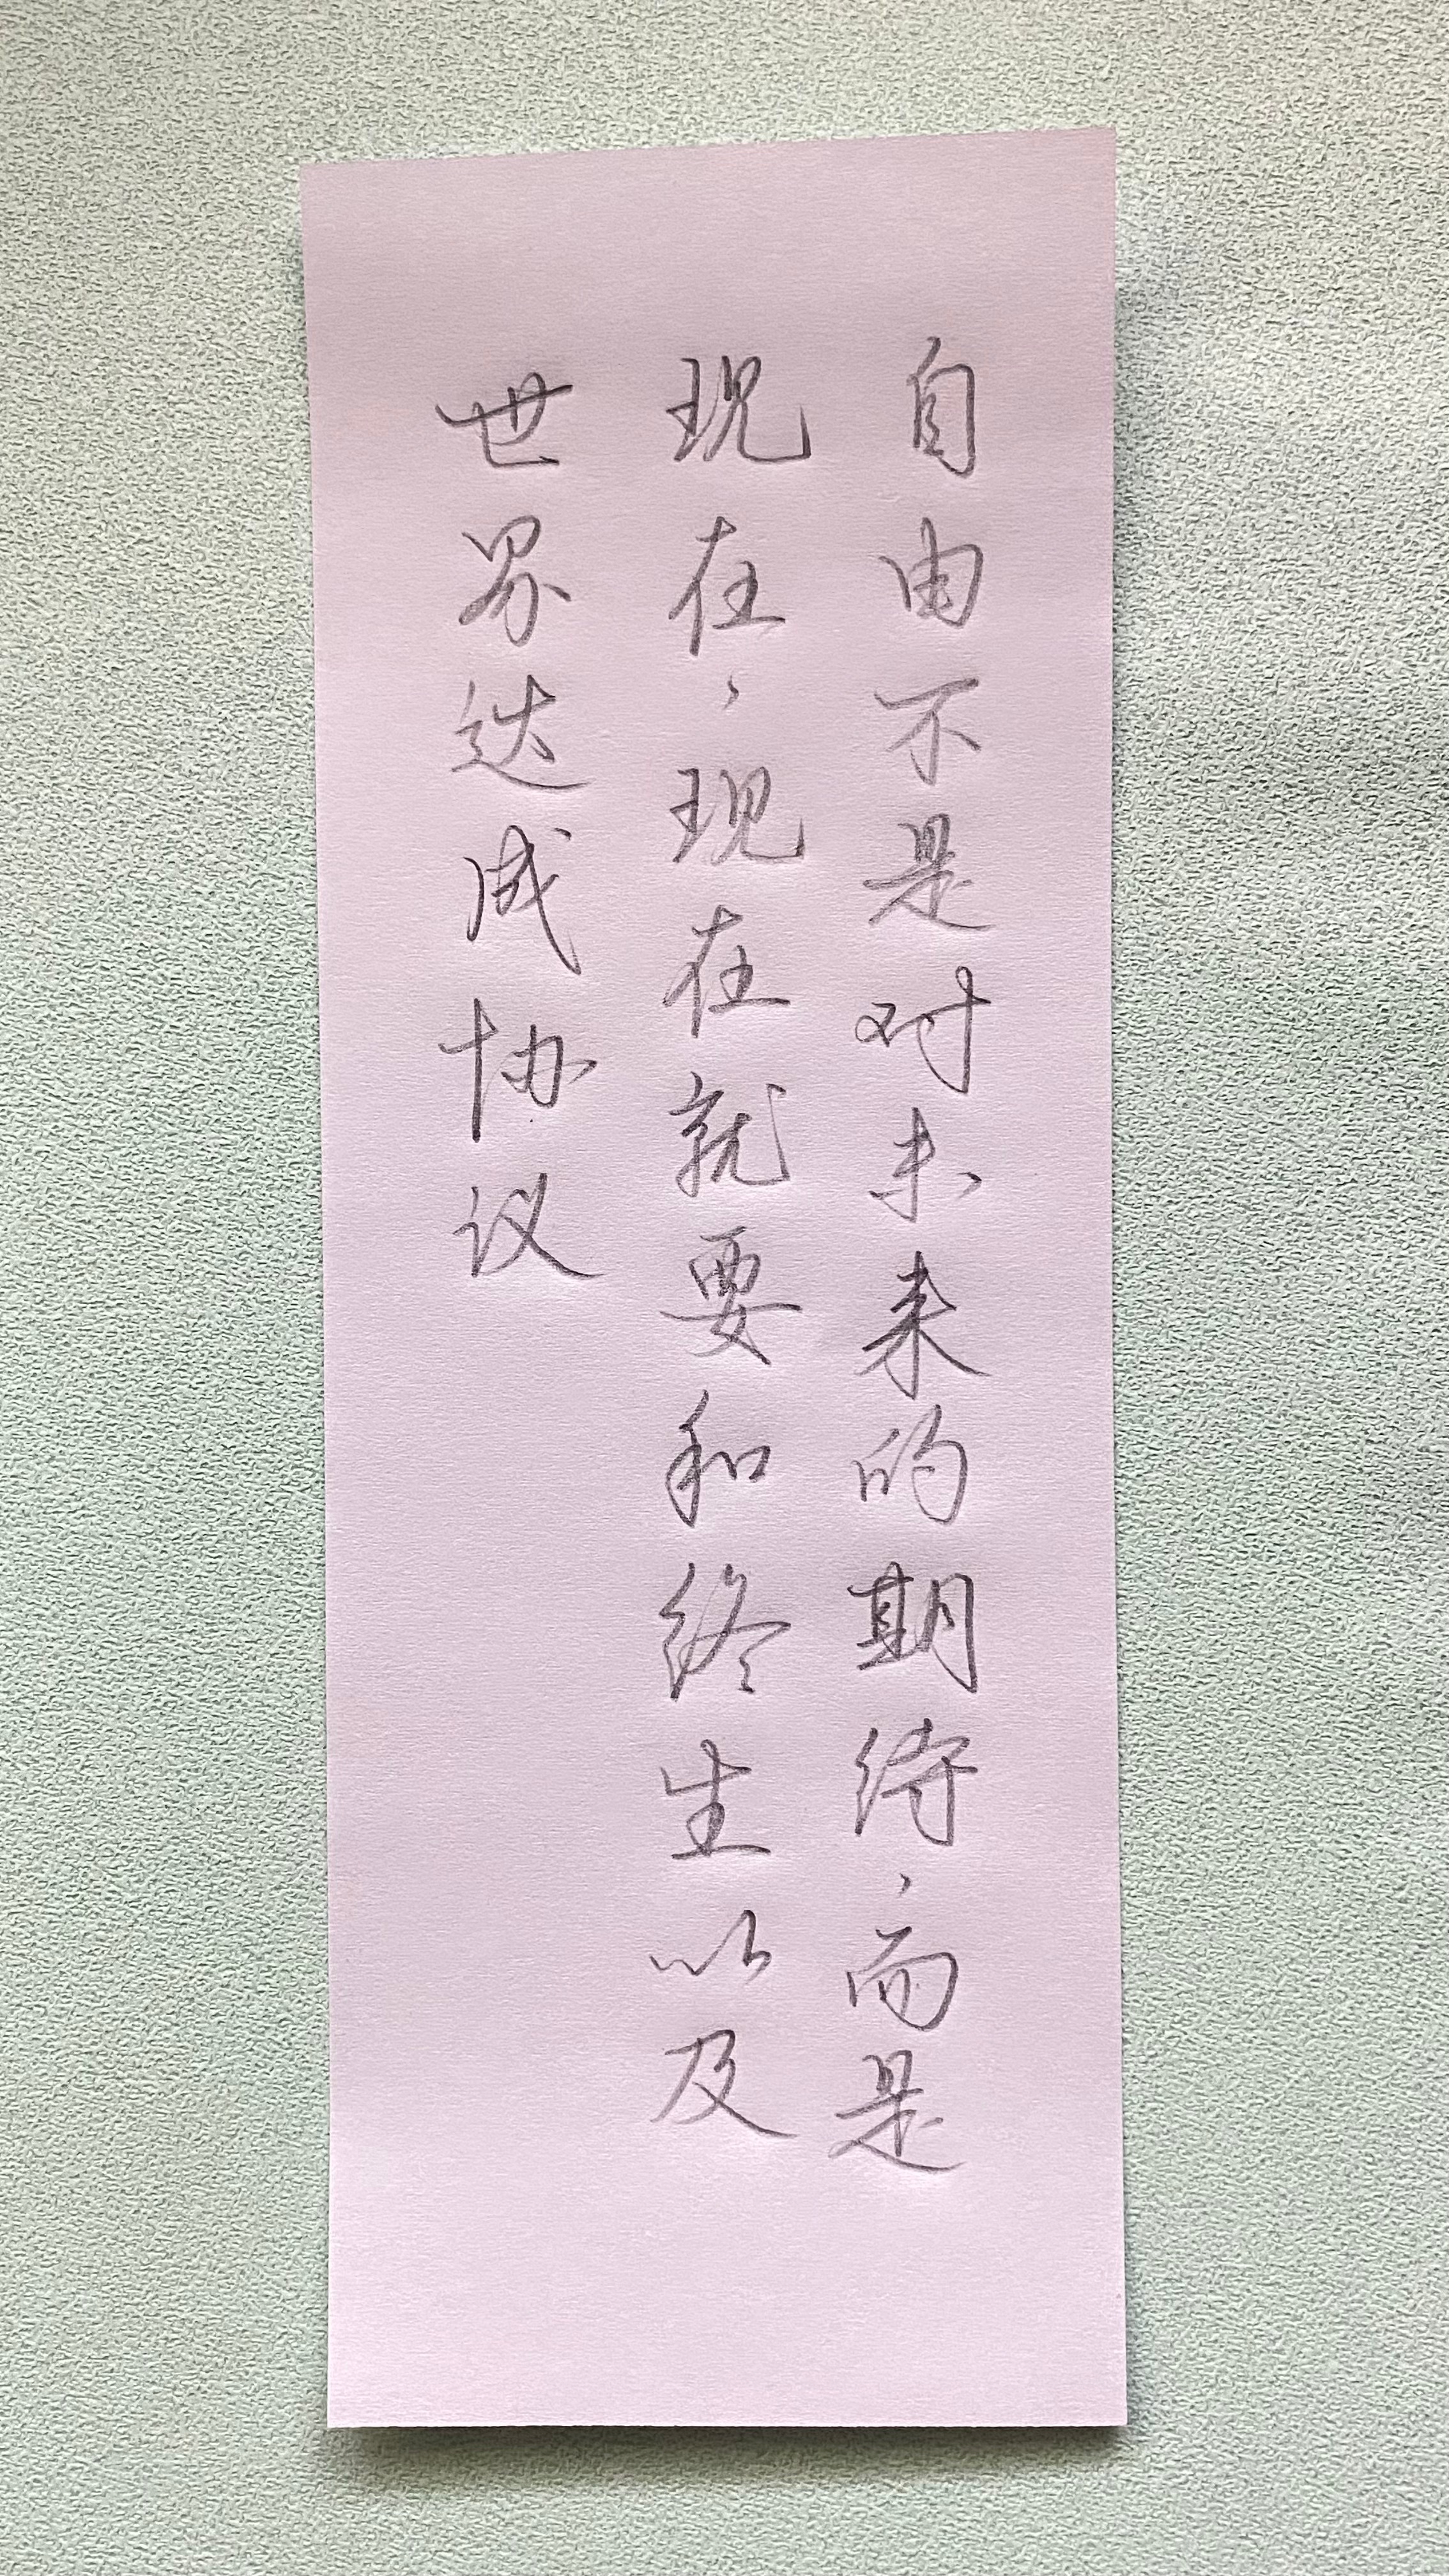 自由不是对未来的期待，而是
现在，现在就要和终生以及
世界达成协议